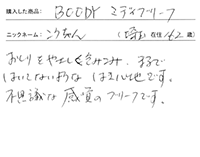 購入した商品: BODY ミディブリーフ
ニックネーム: こうちゃん (埼玉 在住 62 歳)
おしりをやさしく包みこみ、まるで
はいてないような はき心地です。
不思議な感質のブリーフです。